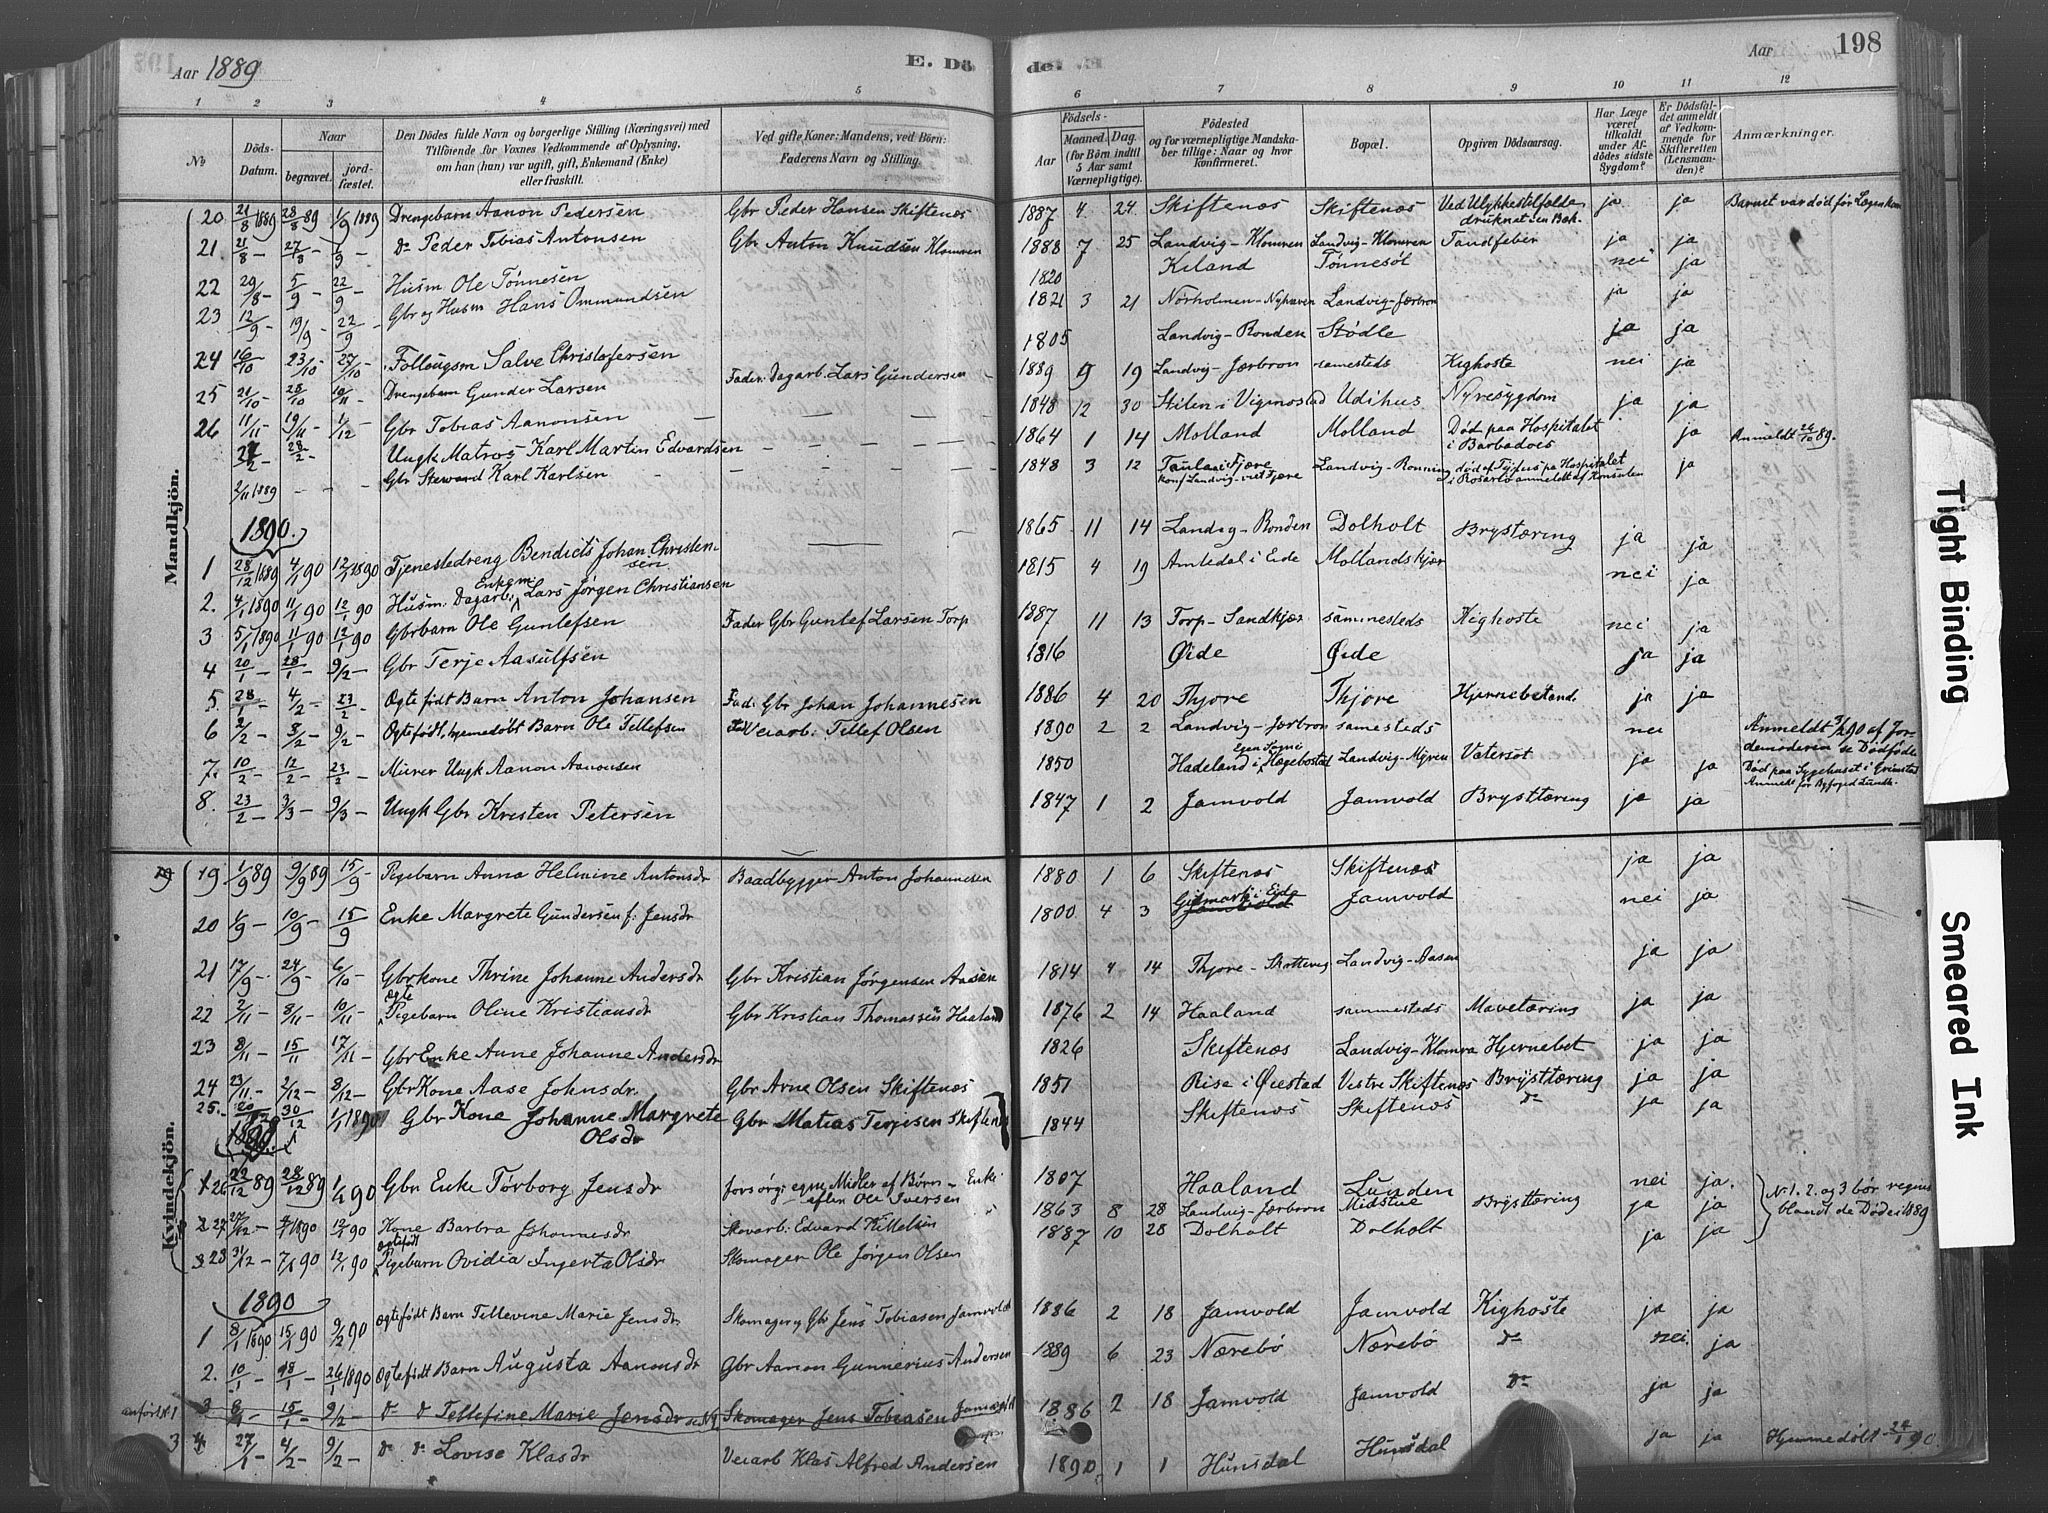 Aar 1889
E. Döde.
Aar
198
1
2
3
4
5
6
7
8
9
10
11
12
No
Döds-
Datum.
Naar
begravet.
jord-
fæstet.
Den Dödes fulde Navn og borgerlige Stilling (Næringsvei) med
Tilföiende for Voxnes Vedkommende af Oplysning,
om han (hun) var ugift, gift, Enkemand (Enke)
eller fraskilt.
Ved gifte Koner: Mandens, ved Börn:
Faderens Navn og Stilling.
Födsels-
Aar
Maaned.
Dag.
(for Börn indtil
5 Aar samt
Værnepligtige).
Födested
og for værnepligtige Mandska-
ber tillige: Naar og hvor
konfirmeret.
Bopæl.
Opgiven Dödsaarsag.
Har Læge
været
tilkaldt
under Af-
dödes sidste
Sygdom?
Er Dödsfal-
det anmeldt
af Vedkom-
mende for
Skifteretten
(Lensman-
den)?
Anmærkninger.
Mandkjön.
20. 21/8 1889 28/8 89 1/9 1889 Drengebarn Aanon Pedersen Gbr Peder Hansen Skiftenæs 1887 4 24 Skiftenæs Skiftenæs Ved Ulykkestilfælde druknat i en Bæk. ja ja Barnet var død før Lægen kom
21. 21/8 - 27/8 - 1/9 - do Peder Tobias Antonsen Gbr Anton Knudsen Klomren 1888 7 25 Landvig-Klomren Landvig-Klomren Tandfeber ja ja
22 29/8 - 5/9 - 22/9 - Husm Ole Tønnesen 1820 Kiland Tønnesøl nei ja
23 12/9 - 19/9 - 22/9 - Gbr og Husm Hans Ommundsen 1821 3 21 Norholmen-Nyhaven Landvig-Jærbron ja ja
24 16/10 23/10 - 27/10 - Follougsm Salve Christofersen 1805 Landvig-Ronden Stødle ja ja
25 21/10 - 28/10 10/11 - Drengebarn Gunder Larsen Fader: Dagarb. Lars Gundersen 1889 9 19 Landvig-Jærbron samesteds Kighoste nei ja
26 11/11 - 19/11 - 1/12 Gbr Tobias Aanonsen 1848 12 30 Stilen i Vigmostad Udihus Nyresygdom ja ja
2/2 - 28/2 - Ungk Matros Karl Martin Edvardsen 1864 1 14 Molland Molland Død paa Hospitalet i Barbados ja Anmeldt 26/10 89.
2/11 1889 Gbr Steward Karl Karlsen 1848 3 12 Taulan i Fjære Landvig-Ronning død af Tyfus pa Hospitalet ja
1890.
1 28/12 1889 4/1 90 12/1 1890 Tjenestedreng Bendicts Johan Christensen 1865 11 14 Landvig-Ronden Dolholt Brystæring ja ja
2. 4/1 1890 11/1 90 12/1 90 Husm: Dagarb: Enkem Lars Jørgen Christiansen 1815 4 19 Amledal i Eide Mollandskjær nei ja
3 5/1 1890 11/1 90 12/1 90 Gbrbarn Ole Guntefsen Fader Gbr Guntef Larsen Torp 1887 11 13 Torp-Sandkjær sammesteds Kighoste nei ja
4 20/1 - 28/1 - 9/2 - Gbr Terje Aasulfsen 1816 Øide Øide ja ja
5. 28/1 - 4/2 - 23/2 - Ægtefødt Barn Anton Johansen Fad: Gbr Johan Johannesen 1886 4 20 Thjore Thjore Hjernebetænd. ja ja
6 2/2 - 8/2 - 9/2 - Ægtefødt, hjemedøbt Barn Ole Tellefsen Veiarb: Tellef Olsen 1890 2 2 Landvig-Jærbron samesteds nei Anmeldt 3/2 90 af Jordemoderen se Dødføde
7. 10/2 - 12/2 - 23/2 - Murer Ungk Aanon Aanonsen 1850 Hadeland i Egen Sogn i Hægebostad Landvig-Myren Vatersot ja ja Død paa Sygehuset i Grimstad
8. 23/2 - 3/3 - 9/3 - Ungk Gbr Kristen Petersen 1847 1 2 Jamvold Jamvold Brysttæring ja ja
Kvindekjön.
19 1/9 89 9/9 89 15/9 - Pigebarn Anna Helmine Antonsdr Baadbygger Anton Johannesen 1880 1 6 Skiftenæs Skiftenæs ja ja
20 4/9 - 10/9 - 15/9 Enke Margrete Gundersen f: Jensdr 1800 4 3 Gitmark i Eide Jamvold nei ja
21 17/9 - 24/9 - 6/10 Gbrkone Thrine Johanne Andersdr Gbr Kristian Jørgensen Aasen 1814 4 14 Thjore-Skottevig Landvig-Aasen ja ja
22 2/11 8/11 - 10/11 - ægte Pigebarn Oline Kristiansdr Gbr Kristian Thomassen Haaland 1876 2 14 Haaland sammesteds Mavetæring ja ja
23 8/11 - 15/11 17/11 - Gbr Enke Anne Johanne Andersdr 1826 Skiftenæs Landvig-Klomra Hjernebet ja ja
24 23/11 - 2/12 - 8/12 - Gbr Kone Aase Johnsdr. Gbr Arne Olsen Skiftenæs 1851 Rise i Øiestad Vestre Skiftenæs Brysttæring ja ja
25. 20/12 30/12 1/1 1890 Gbr Kone Johanne Margrete Olsdr Gbr Matias Terjesen Skiftenæs 1844 Skiftenæs Skiftenæs do ja ja
1890
1 26 22/12 89 28/12 89 1/1 90 Gbr Enke Torborg Jensdr forsørg: egne Midler af Børn - Enke efter Ole Iversen 1807 Haaland Lunden nei ja. No 1. 2. og 3 bør regnes blandt de Døde i 1889
2 27 27/12 - 4/1 1890 12/1 90 Kone Barbra Johannesdr Skovarb: Edvard Kittelsen 1863 8 28 Landvig-Jærbron Midstue Brysttæring ja ja
3 28 31/12 - 7/1 90 12/1 90 Ægtefødt Pigebarn Ovidia Ingerta Olsdr Skomager Ole Jørgen Olsen 1887 10 28 Dolholt Dolholt ja ja
1890
1 8/1 1890 15/1 90 9/2 90 Ægtefødt Barn Tellevine Marie Jensdr Skomager og Gbr Jens Tobiasen Jamvold 1886 2 18 Jamvold Jamvold Kighoste ja ja
2. 10/1 - 18/1 - 26/1 1890 Ægtefødt Barn Augusta Aanonsdr Gbr Aanon Gunnerius Andersen 1889 6 23 Nærebø Nærebø do nei ja
anført No 1 3 8/1 - 15/1 - 9/2 - do do Tellefine Marie Jensdr se No 1 Skomager Jens Tobiasen Jamvold 1886 2 18 Jamvold Jamvold do ja ja
3 4. 27/1 - 4/2 - 9/2 - do do Lovise Klasdr Veiarb Klas Alfred Andersen 1890 1 1 Hunsdal Hunsdal ja ja Hjemmedøbt 24/1 90.
Tight Binding
Smeared Ink